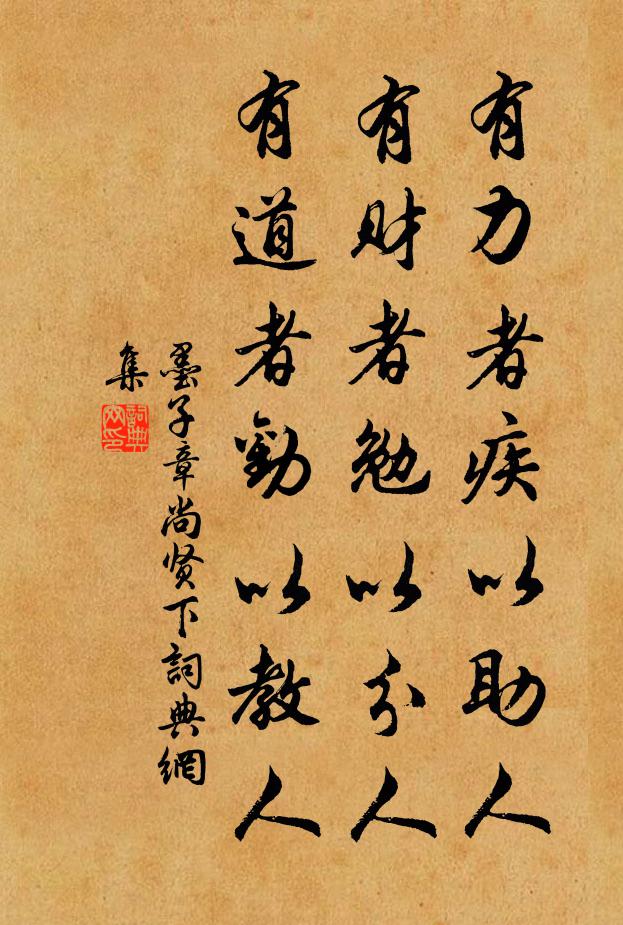 有力者疾以助人
有财者勉以分人
有道者勸以教人
墨子章尚贤下詞典網
集
詞典
网印